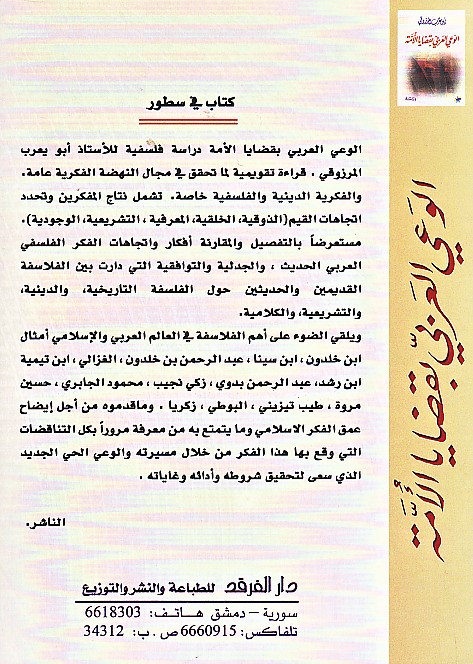 كتاب في سطور
الوعي العربي بقضايا الأمة دراسة فلسفية للأستاذ أبو يعرب
المرزوقي . قراءة تقويمية لما تحقق في مجال النهضة الفكرية عامة.
والفكرية الدينية والفلسفية خاصة. تشمل نتاج المفكرين وتحدد
اتجاهات القيم(الذوقية، الخلقية، المعرفية ، التشريعية، الوجودية).
مستعرضاً بالتفصيل والمقارنة أفكار واتجاهات الفكر الفلسفي
العربي الحديث ، والجدلية والتوافقية التي دارت بين الفلاسفة
القديمين والحديثين حول الفلسفة التاريخية، والدينية،
والتشريعية، والكلامية.
ويلقي الضوء على أهم الفلاسفة في العالم العربي والإسلامي أمثال
ابن خلدون ، ابن سينا ، عبد الرحمن بن خلدون ، الغزالي ، ابن تيمية
ابن رشد، عبد الرحمن بدوي ، زكي نجيب ، محمود الجابري ، حسين
مروة ، طيب تيزيني ، البوطي ، زكريا . وماقدموه من أجل إيضاح
عمق الفكر الاسلامي وما يتمتع به من معرفة مروراً بكل التناقضات
التي وقع بها هذا الفكر من خلال مسيرته والوعي الحي الجديد
الذي سعى لتحقيق شروطه وأدائه وغاياته .
الناشر.
دار الفرقد للطباعة والنشر والتوزيع
سورية – دمشق هــاتــف: 6618303
تلفاكس: 6660915 ص . ب: 34312
الوعي العربي بقضايا الأمة
الوعي العربي بقضايا الأمة